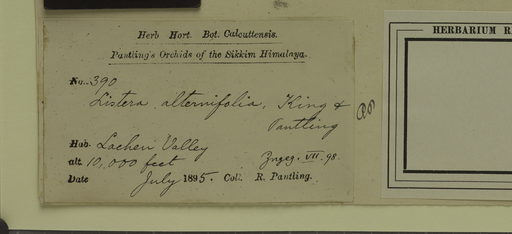 Herb Hort. Bot. Calcuttensis.
Pantling's Orchids of the Sikkim Himalaya.
No. 390
Listera alternifolia, King &
Pantling
Hab. Lachen Valley
alt. 10,000 feet
Zngeg. VII. 98.
Date July 1895. Coll. R. Pantling.
HERBARIUM R